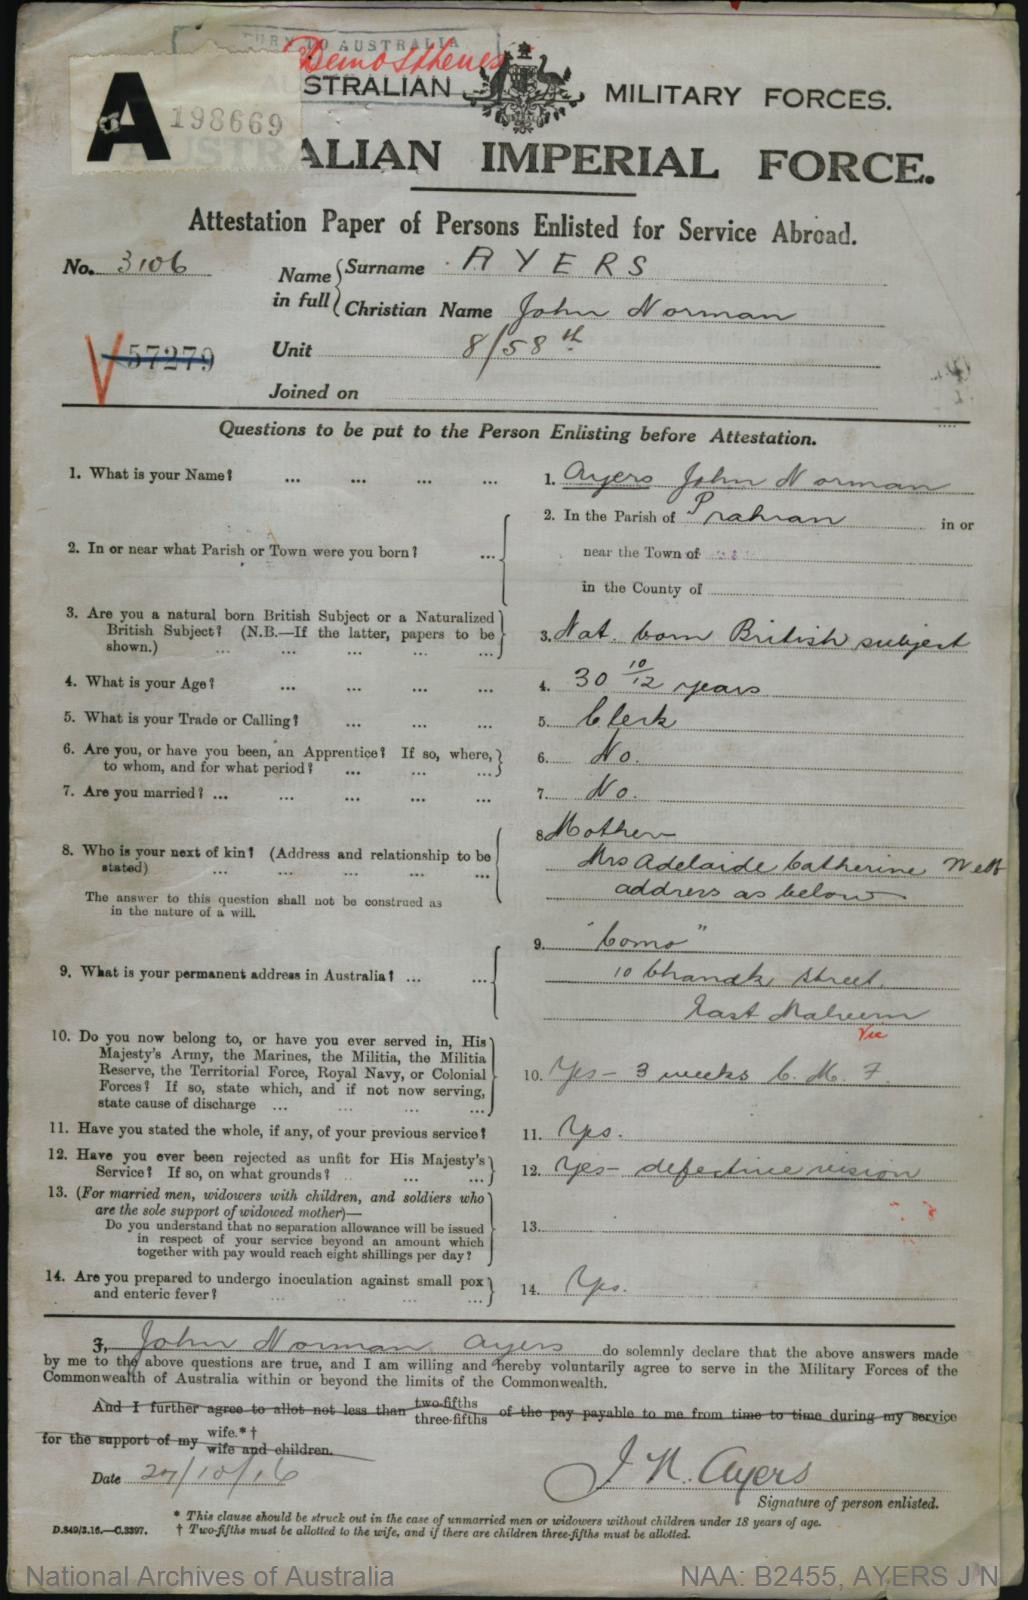 TURN TO AUSTRALIA
Demosthenes
A 198669
STRALIAN MILITARY FORCES.
AUSTRALIAN IMPERIAL FORCE.
Attestation Paper of Persons Enlisted for Service Abroad.
No. 3106
Name in full
Surname AYERS
Christian Name John Norman
57279
Unit 8/58th
Joined on
Questions to be put to the Person Enlisting before Attestation.
1. What is your Name? ... ... ... ... 1. Ayers John Norman
2. In or near what Parish or Town were you born? ...
2. In the Parish of Prahran in or
near the Town of
in the County of
3. Are you a natural born British Subject or a Naturalized
British Subject? (N.B.—If the latter, papers to be
shown.) ... ... ... ... ...
3. Nat. born British subject
4. What is your Age? ... ... ... ... 4. 30 10/12 years
5. What is your Trade or Calling? ... ... ... 5. Clerk
6. Are you, or have you been, an Apprentice? If so, where,
to whom, and for what period? ... ... ...
6. No.
7. Are you married? ... ... ... ... ... 7. No.
8. Who is your next of kin? (Address and relationship to be
stated) ... ... ... ... ...
The answer to this question shall not be construed as
in the nature of a will.
8. Mother
Mrs Adelaide Catherine Webb
address as below
9. What is your permanent address in Australia? ... ...
9. "Como"
10 Street,
East Malvern
Vic
10. Do you now belong to, or have you ever served in, His
Majesty's Army, the Marines, the Militia, the Militia
Reserve, the Territorial Force, Royal Navy, or Colonial
Forces? If so, state which, and if not now serving,
state cause of discharge ... ... ... ...
10. Yes - 3 weeks C. M. F.
11. Have you stated the whole, if any, of your previous service? 11. Yes.
12. Have you ever been rejected as unfit for His Majesty's
Service? If so, on what grounds? ... ... ...
12. Yes - defective vision
13. (For married men, widowers with children, and soldiers who
are the sole support of widowed mother)—
Do you understand that no separation allowance will be issued
in respect of your service beyond an amount which
together with pay would reach eight shillings per day?
13.
14. Are you prepared to undergo inoculation against small pox
and enteric fever? ... ... ... ...
14. Yes.
I, John Norman Ayers do solemnly declare that the above answers made
by me to the above questions are true, and I am willing and hereby voluntarily agree to serve in the Military Forces of the
Commonwealth of Australia within or beyond the limits of the Commonwealth.
And I further agree to allot not less than two-fifths three-fifths of the pay payable to me from time to time during my service
for the support of my wife.*† wife and children.
Date 27/10/16
J N Ayers
Signature of person enlisted.
* This clause should be struck out in the case of unmarried men or widowers without children under 18 years of age.
D.849/3.16.—C.3397. † Two-fifths must be allotted to the wife, and if there are children three-fifths must be allotted.
National Archives of Australia NAA: B2455, AYERS J N